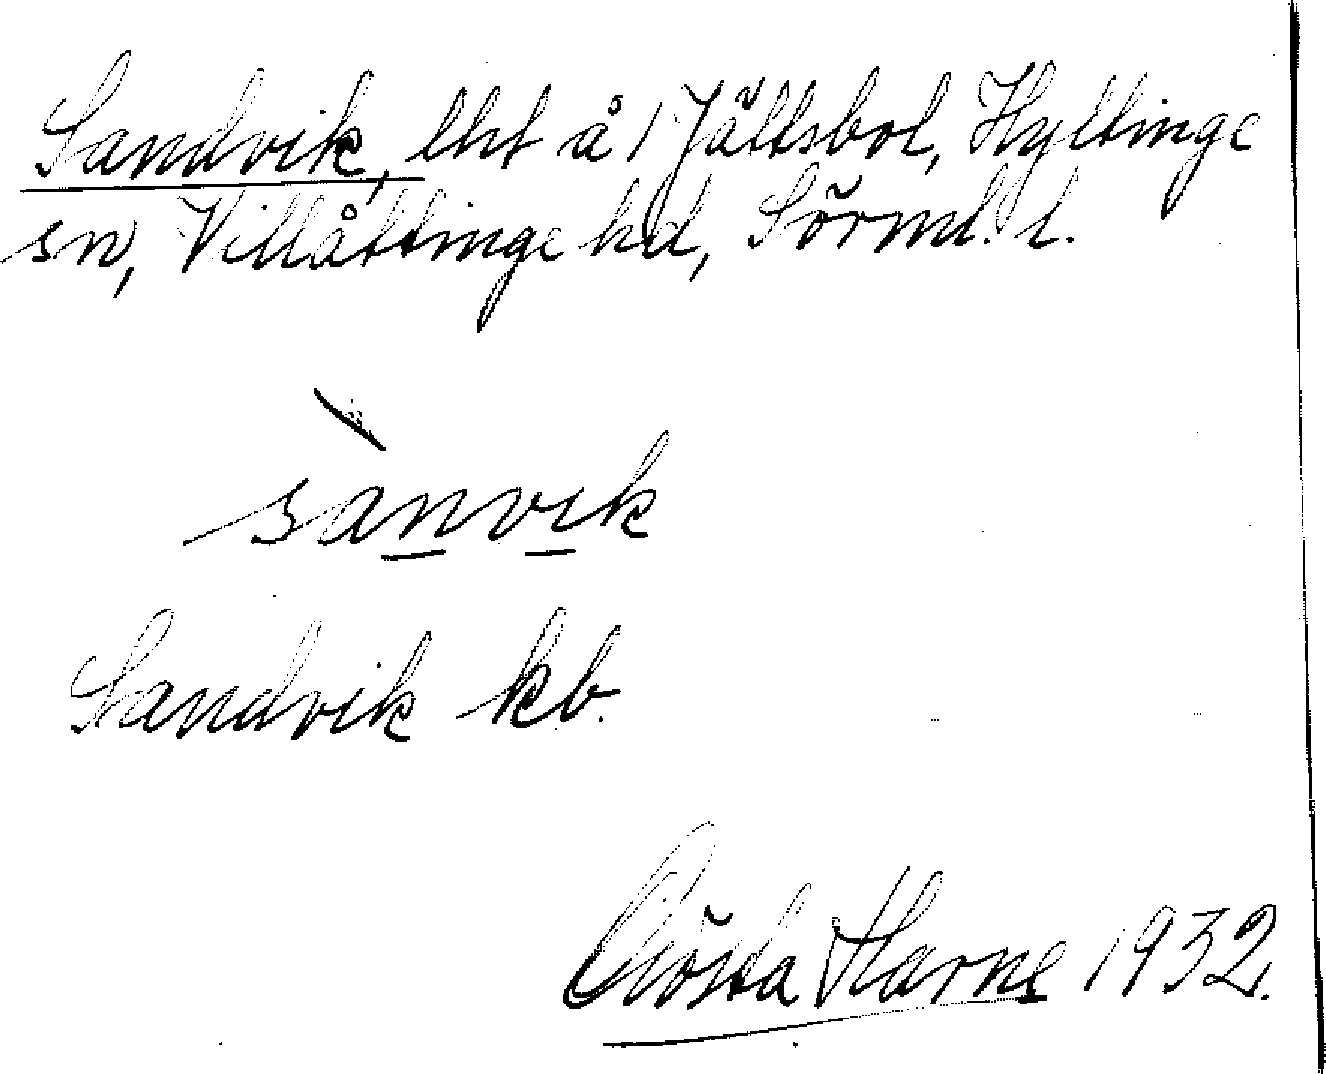 Sandvik, lht å 1 Jältsbol, Hyltinge
sn, Villåttinge hd, Sörml. l.
sànvik
Sandvik kb.
Gösta Harne 1932.